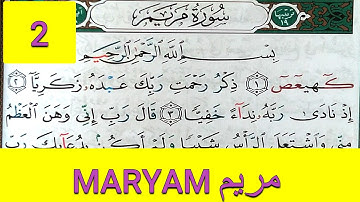 2
سُورَةُ مَرْيَمَ
ترتيبها ١٩
بِسْمِ اللَّهِ الرَّحْمَٰنِ الرَّحِيمِ
كٓهيعٓصٓ ١ ذِكْرُ رَحْمَتِ رَبِّكَ عَبْدَهُۥ زَكَرِيَّآ ٢
إِذْ نَادَىٰ رَبَّهُۥ نِدَآءً خَفِيًّا ٣ قَالَ رَبِّ إِنِّى وَهَنَ ٱلْعَظْمُ
مِنِّى وَٱشْتَعَلَ ٱلرَّأْسُ شَيْبًا وَلَمْ أَكُنۢ بِدُعَآئِكَ رَبِّ
MARYAM مريم